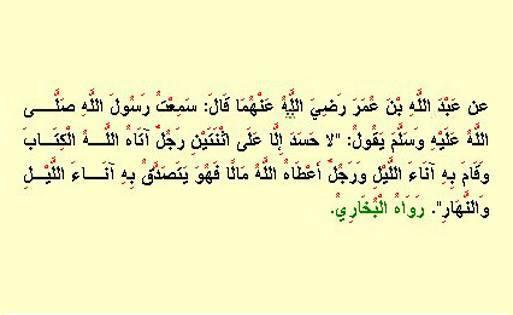 عن عَبْدَ اللَّهِ بْنَ عُمَرَ رَضِيَ اللَّهُ عَنْهُمَا قَالَ: سَمِعْتُ رَسُولَ اللَّهِ صَلَّـــى
اللَّهُ عَلَيْهِ وَسَلَّمَ يَقُولُ: "لا حَسَدَ إِلَّا عَلَى اثْنَتَيْنِ رَجُلٌ آتَاهُ اللَّــهُ الْكِتَــابَ
وَقَامَ بِهِ آنَاءَ اللَّيْلِ وَرَجُلٌ أَعْطَاهُ اللَّهُ مَالًا فَهُوَ يَتَصَدَّقُ بِهِ آنَــاءَ اللَّيْــلِ
وَالنَّهَارِ". رَوَاهُ الْبُخَارِيُّ.